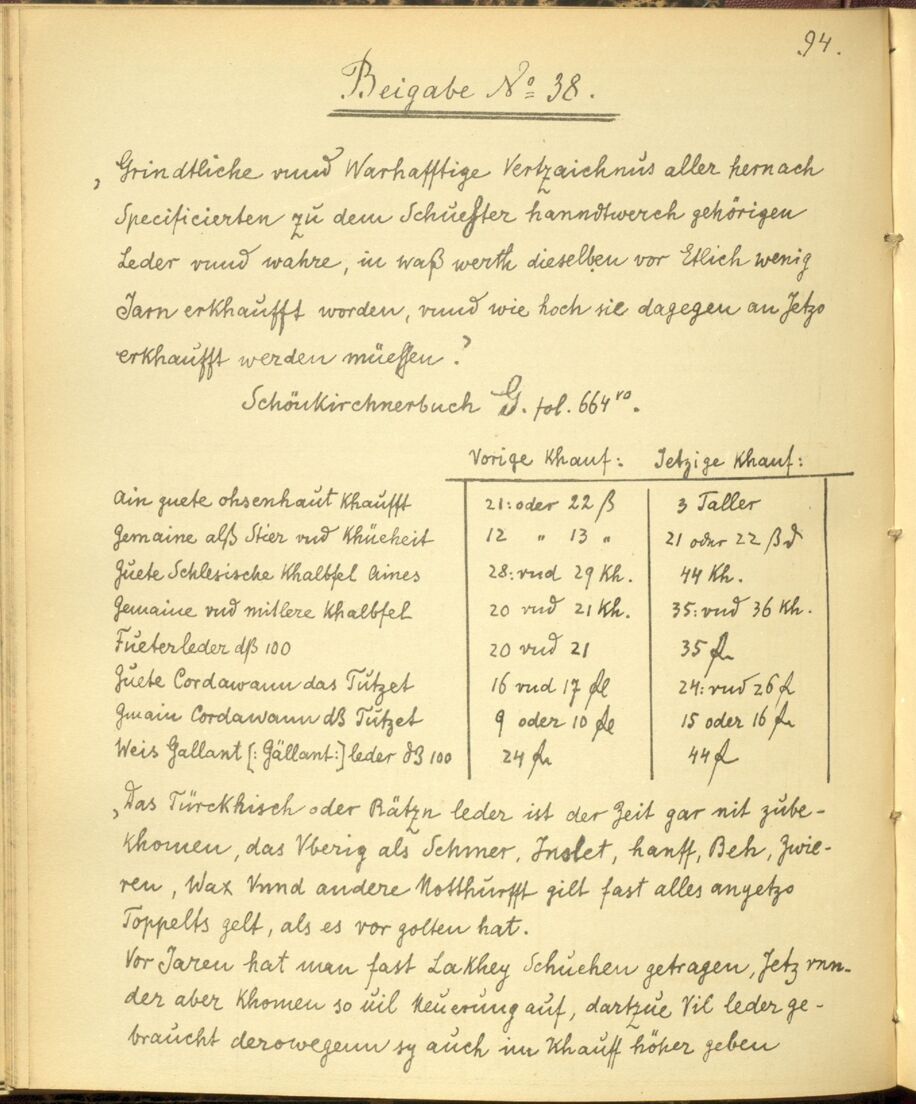 94.
Beigabe No 38.
„Grindtliche vnnd Warhafftige Vertzaichnus aller hernach
Specificierten zu dem Schuester hanndtwerch gehörigen
Leder vnnd wahre, in waß werth dieselben vor Etlich wenig
Jarn erkhaufft worden, vnnd wie hoch sie dagegen an Jetzo
erkhaufft werden müessen.“
Schönkirchnerbuch G. fol. 664 vo.
Vorige Khauf: Jetzige Khauf:
Ain guete ohsenhaut khaufft 21: oder 22 ß 3 Taller
Gemaine alß Stier vnd Khüeheit 12 „ 13 „ 21 oder 22 ß d
Guete Schlesische Khalbfel Aines 28: vnd 29 Kh. 44 Kh.
Gemaine vnd mitlere Khalbfel 20 vnd 21 Kh. 35: vnd 36 Kh.
Fueterleder dß 100 20 vnd 21 35 fl
Guete Cordawann das Tutzet 16 vnd 17 fl 24: vnd 26 fl
Gmain Cordawann dß Tutzet 9 oder 10 fl 15 oder 16 fl
Weis Gallant [: Gällant:] leder dß 100 24 fl 44 fl
„Das Türckhisch oder Rätzn leder ist der Zeit gar nit zube-
khomen, das Vberig als Schmer, Inslet, hanff, Beh, Zwie-
ren, Wax Vnnd andere Notthurfft gilt fast alles anyetzo
Toppelts gelt, als es vor golten hat.
Vor Jaren hat man fast Lakhey Schuehen getragen, Jetz vnn-
der aber Khomen so uil Neuerung auf, dartzue Vil leder ge-
braucht derowegenn sy auch im Khauff höher geben